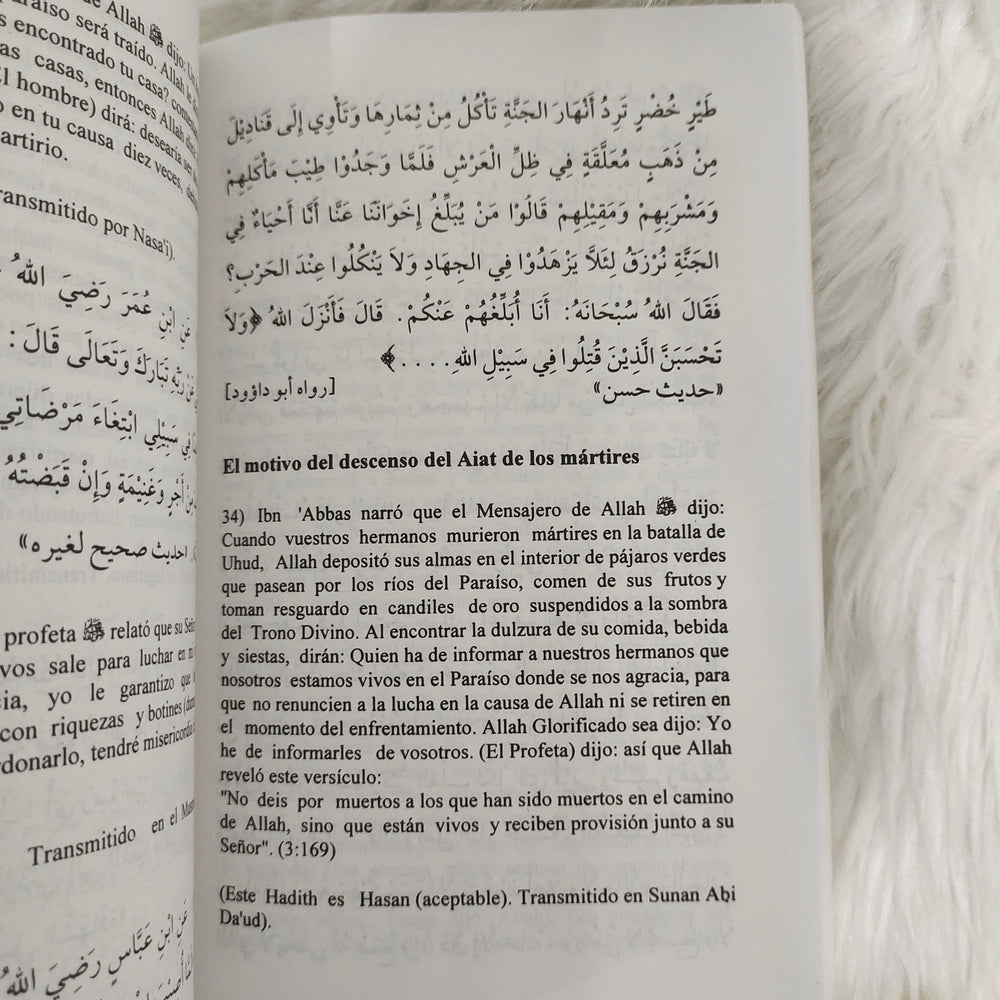 de Allah ﷺ dijo: Un
paraíso será traído. Allah le
encontrado tu casa?
casas, entonces Allah
El hombre) dirá: desearía
en tu causa diez veces,
artirio.
ransmitido por Nasa'i).
عَنِ ابْنِ عُمَرَ رَضِيَ اللهُ
عَنْ رَبِّهِ تَبَارَكَ وَتَعَالَى قَالَ:
فِي سَبِيلِي ابْتِغَاءَ مَرْضَاتِي
مِنْ أَجْرٍ وَغَنِيمَةٍ وَإِنْ قَبَضْتُهُ
حديث صحيح لغيره»
profeta ﷺ relató que su
vos sale para luchar en
ia, yo le garantizo que
con riquezas y botines
donarlo, tendré misericordia
Transmitido en el
عَنِ ابْنِ عَبَّاسٍ رَضِيَ اللهُ
طَيْرٍ خُضْرٍ تَرِدُ أَنْهَارَ الجَنَّةِ تَأْكُلُ مِنْ ثِمَارِهَا وَتَأْوِي إِلَى قَنَادِيْلَ
مِنْ ذَهَبٍ مُعَلَّقَةٍ فِي ظِلِّ الْعَرْشِ فَلَمَّا وَجَدُوْا طِيْبَ مَأْكَلِهِمْ
وَمَشْرَبِهِمْ وَمَقِيْلِهِمْ قَالُوْا مَنْ يُبَلِّغُ إِخْوَانَنَا عَنَّا أَنَّا أَحْيَاءٌ فِي
الجَنَّةِ نُرْزَقُ لِئَلاَّ يَزْهَدُوْا فِي الجِهَادِ وَلاَ يَنْكُلُوا عِنْدَ الحَرْبِ؟
فَقَالَ اللهُ سُبْحَانَهُ: أَنَا أُبَلِّغُهُمْ عَنْكُمْ. قَالَ فَأَنْزَلَ اللهُ ﴿وَلاَ
تَحْسَبَنَّ الَّذِيْنَ قُتِلُوا فِي سَبِيْلِ اللهِ....﴾
«حديث حسن» [رواه أبو داؤود]
El motivo del descenso del Aiat de los mártires
34) Ibn 'Abbas narró que el Mensajero de Allah ﷺ dijo:
Cuando vuestros hermanos murieron mártires en la batalla de
Uhud, Allah depositó sus almas en el interior de pájaros verdes
que pasean por los ríos del Paraíso, comen de sus frutos y
toman resguardo en candiles de oro suspendidos a la sombra
del Trono Divino. Al encontrar la dulzura de su comida, bebida
y siestas, dirán: Quien ha de informar a nuestros hermanos que
nosotros estamos vivos en el Paraíso donde se nos agracia, para
que no renuncien a la lucha en la causa de Allah ni se retiren en
el momento del enfrentamiento. Allah Glorificado sea dijo: Yo
he de informarles de vosotros. (El Profeta) dijo: así que Allah
reveló este versículo:
"No deis por muertos a los que han sido muertos en el camino
de Allah, sino que están vivos y reciben provisión junto a su
Señor". (3:169)
(Este Hadith es Hasan (aceptable). Transmitido en Sunan Abi
Da'ud).